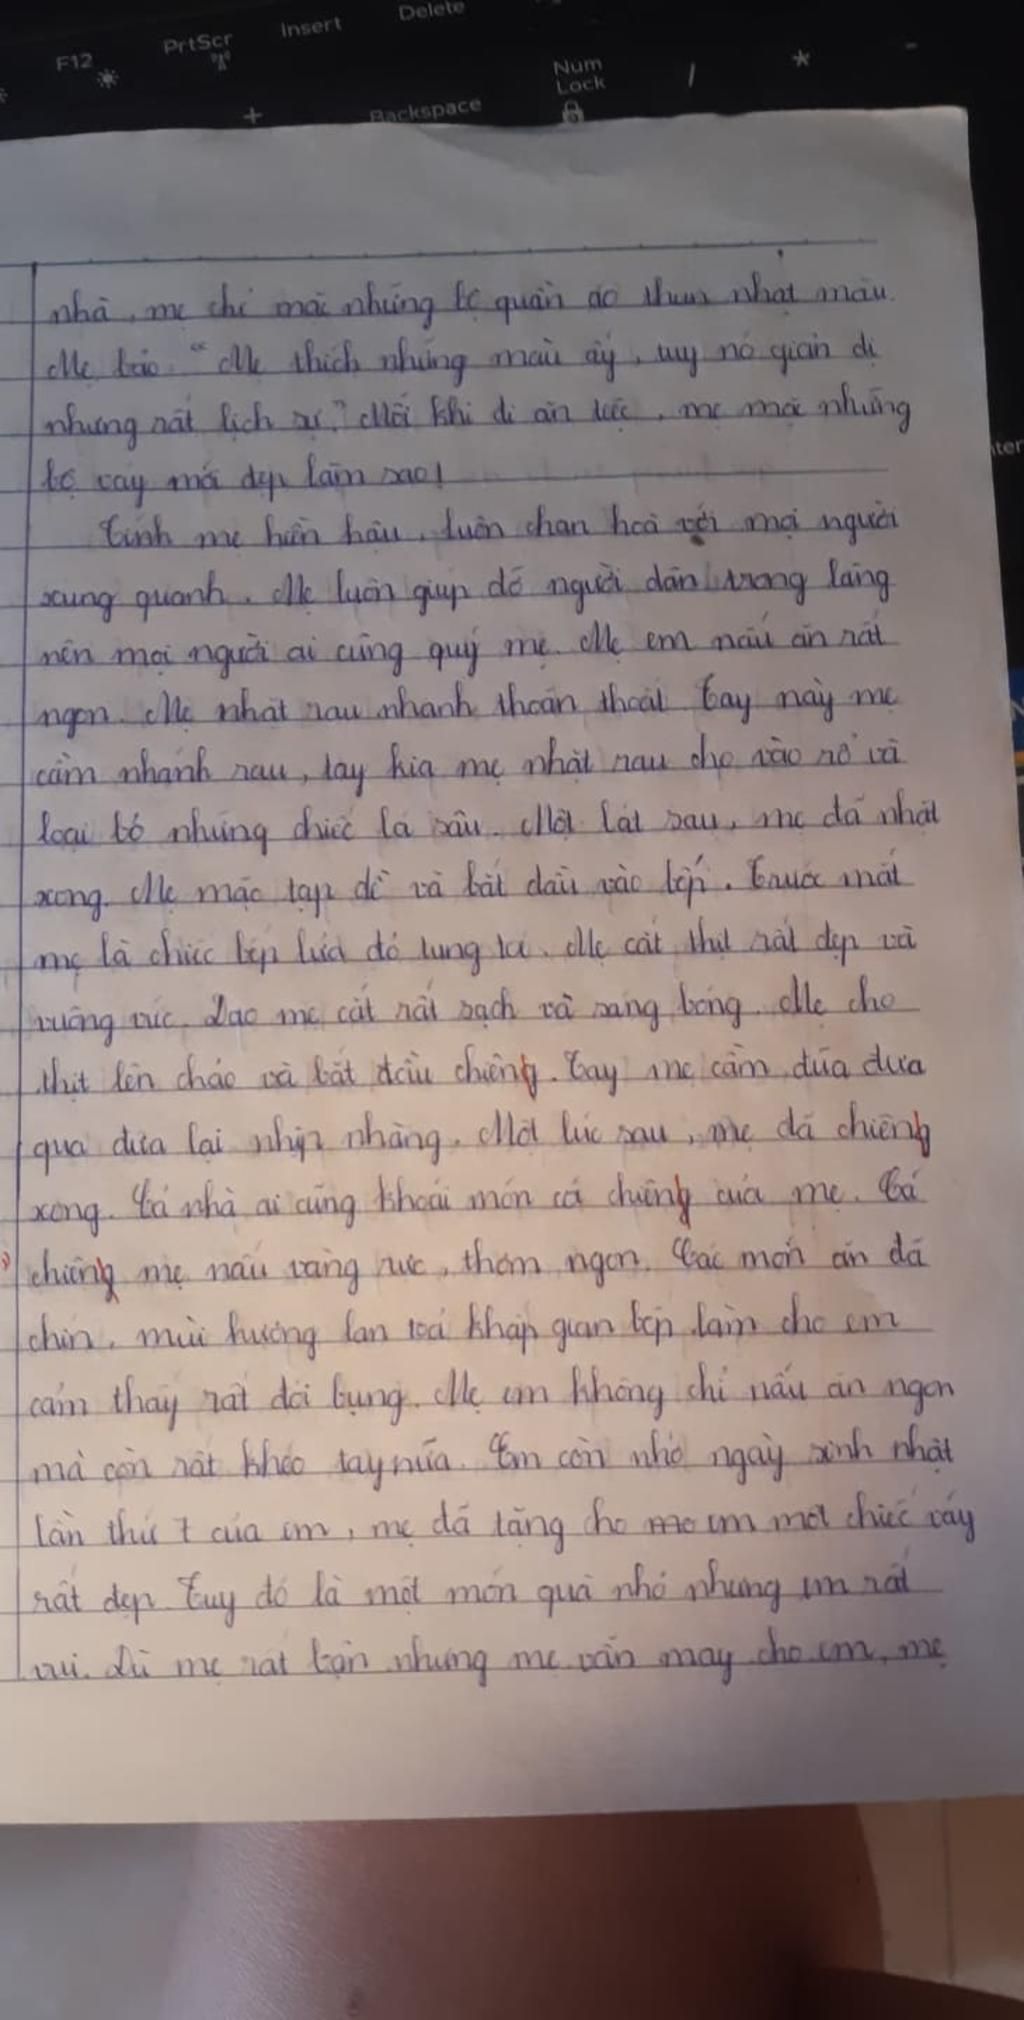 F12
PrtScr
Insert
Delete
+
Backspace
Num
Lock
/
*
-
nhà, mẹ chỉ mặc những bộ quần áo thun nhạt màu.
Mẹ bảo "Mẹ thích những màu ấy, tuy nó giản dị
nhưng rất lịch sự." Mỗi khi đi ăn tiệc, mẹ mặc những
bộ váy mới đẹp làm sao!
Tính mẹ hiền hậu, luôn chan hoà với mọi người
xung quanh. Mẹ luôn giúp đỡ người dân trong làng
nên mọi người ai cũng quý mẹ. Mẹ em nấu ăn rất
ngon. Mẹ nhặt rau nhanh thoăn thoắt. Tay này mẹ
cầm nhánh rau, tay kia mẹ nhặt rau cho vào rổ và
loại bỏ những chiếc lá sâu. Một lát sau, mẹ đã nhặt
xong. Mẹ mặc tạp dề và bắt đầu vào bếp. Trước mắt
mẹ là chiếc bếp lửa đỏ tung toé. Mẹ cắt thịt rất đẹp và
vuông vức. Dao mẹ cắt rất sạch và sáng bóng. Mẹ cho
thịt lên chảo và bắt đầu chiêng. Tay mẹ cầm đũa đưa
qua đưa lại nhịp nhàng. Một lúc sau, mẹ đã chiêng
xong. Cả nhà ai cũng khoái món cá chiêng của mẹ. Cá
chiêng mẹ nấu vàng rực, thơm ngon. Các món ăn đã
chín, mùi hương lan toả khắp gian bếp làm cho em
cảm thấy rất đói bụng. Mẹ em không chỉ nấu ăn ngon
mà còn rất khéo tay nữa. Em còn nhớ ngày sinh nhật
lần thứ 7 của em, mẹ đã tặng cho em một chiếc váy
rất đẹp. Tuy đó là một món quà nhỏ nhưng em rất
vui. Dù mẹ rất bận nhưng mẹ vẫn may cho em, mẹ